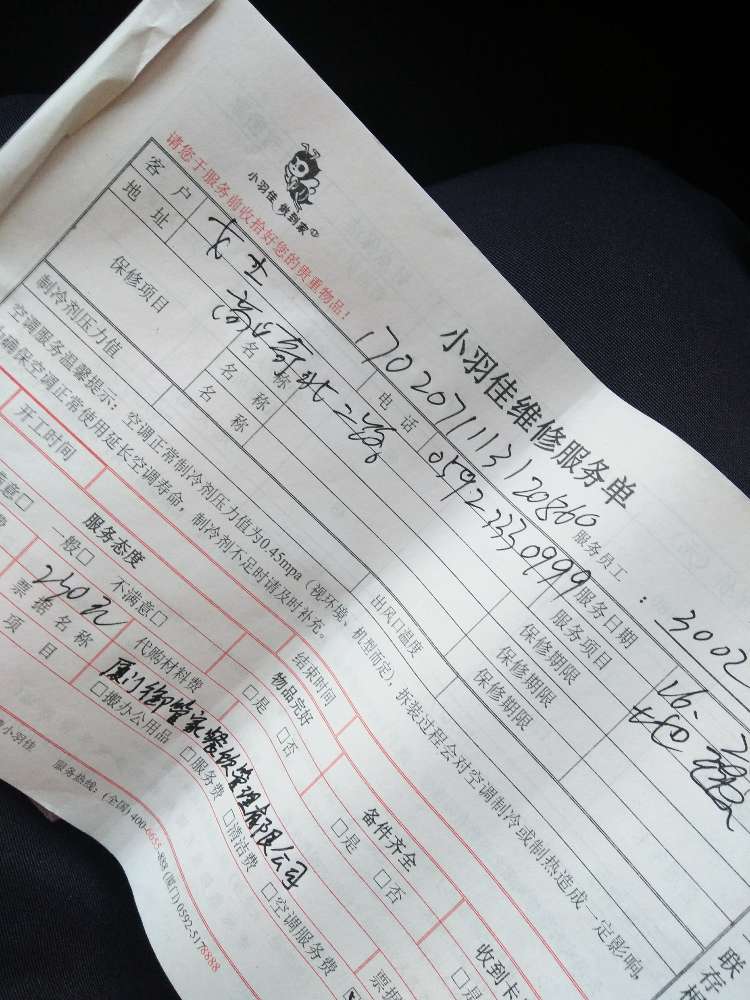 小羽佳 做到家
请您于服务前收拾好您的贵重物品!
小羽佳维修服务单
服务员工 : 3002
客户 女士 电话 0592 3330999 服务日期
17020711131 20860
地址 高崎北二路 服务项目
保修项目 名称 保修期限
名称 保修期限
名称 保修期限
制冷剂压力值 出风口温度
空调服务温馨提示:空调正常制冷剂压力值为0.45mpa(视环境、机型而定),拆装过程会对空调制冷或制热造成一定影响,
确保空调正常使用延长空调寿命,制冷剂不足时请及时补充。
开工时间 结束时间
服务态度 物品完好 备件齐全 收到卡
满意□ 一般□ 不满意□ □是 □否 □是 □否 □是
230元 代购材料费
票据名称 厦门御管家餐饮管理有限公司 票据
项目 □搬办公用品 □服务费 □清洁费 □空调服务费
小羽佳 服务热线:(全国)400-6655-888 (厦门)0592-5178888
联存根